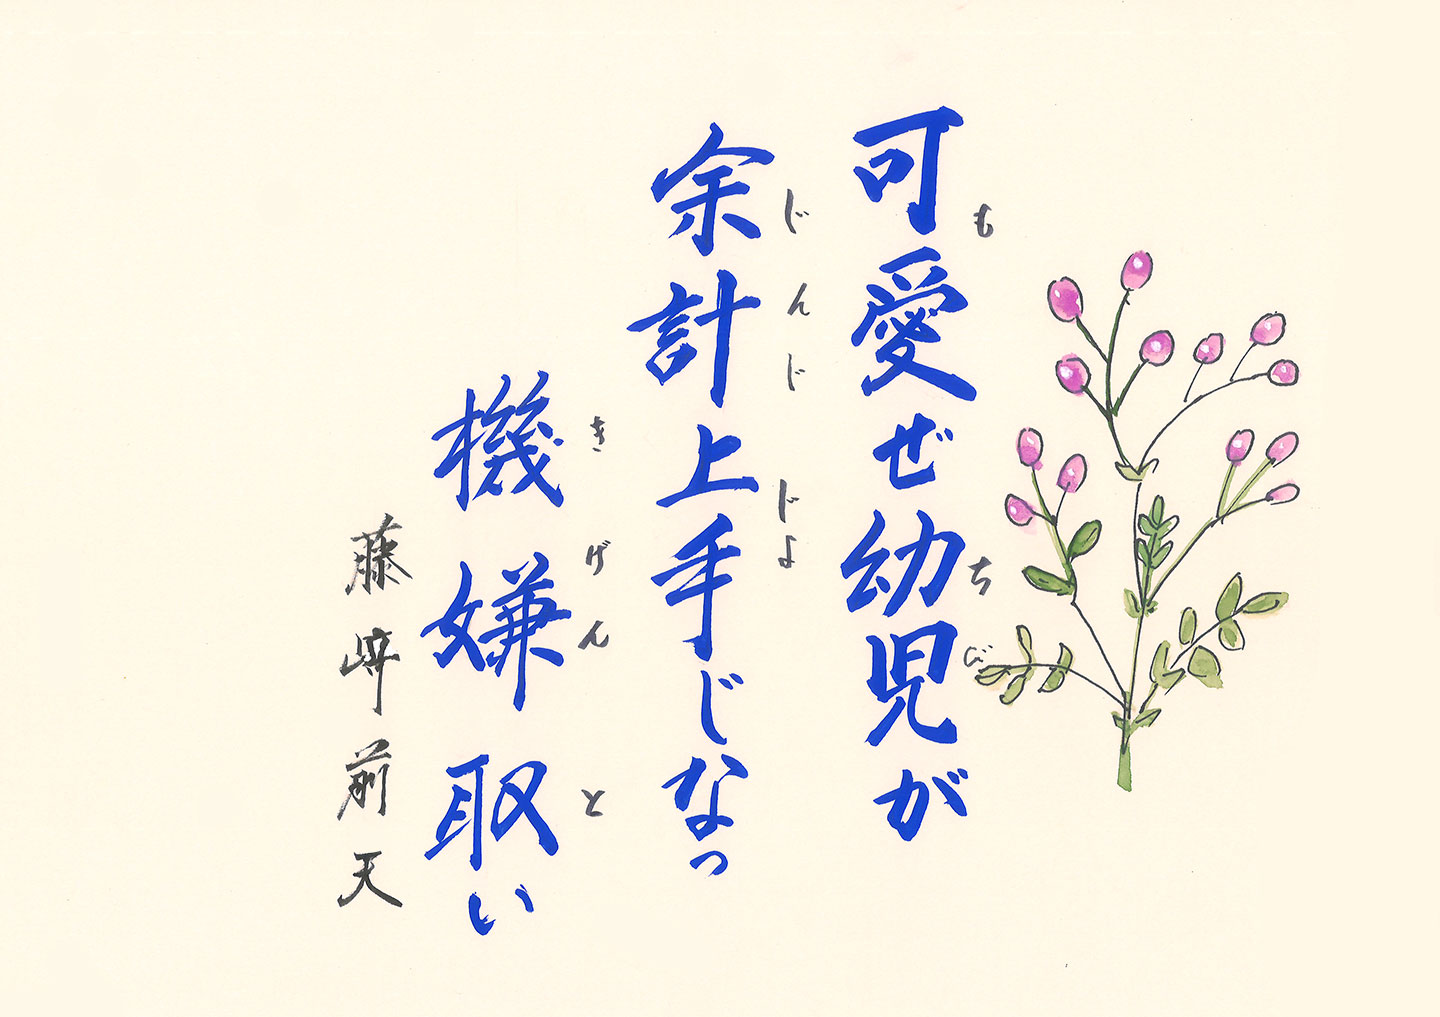 可愛ぜ幼児が
も
ちび
余計上手じなっ
じんじ
じよ
機嫌取い
きげんと
藤崎前天